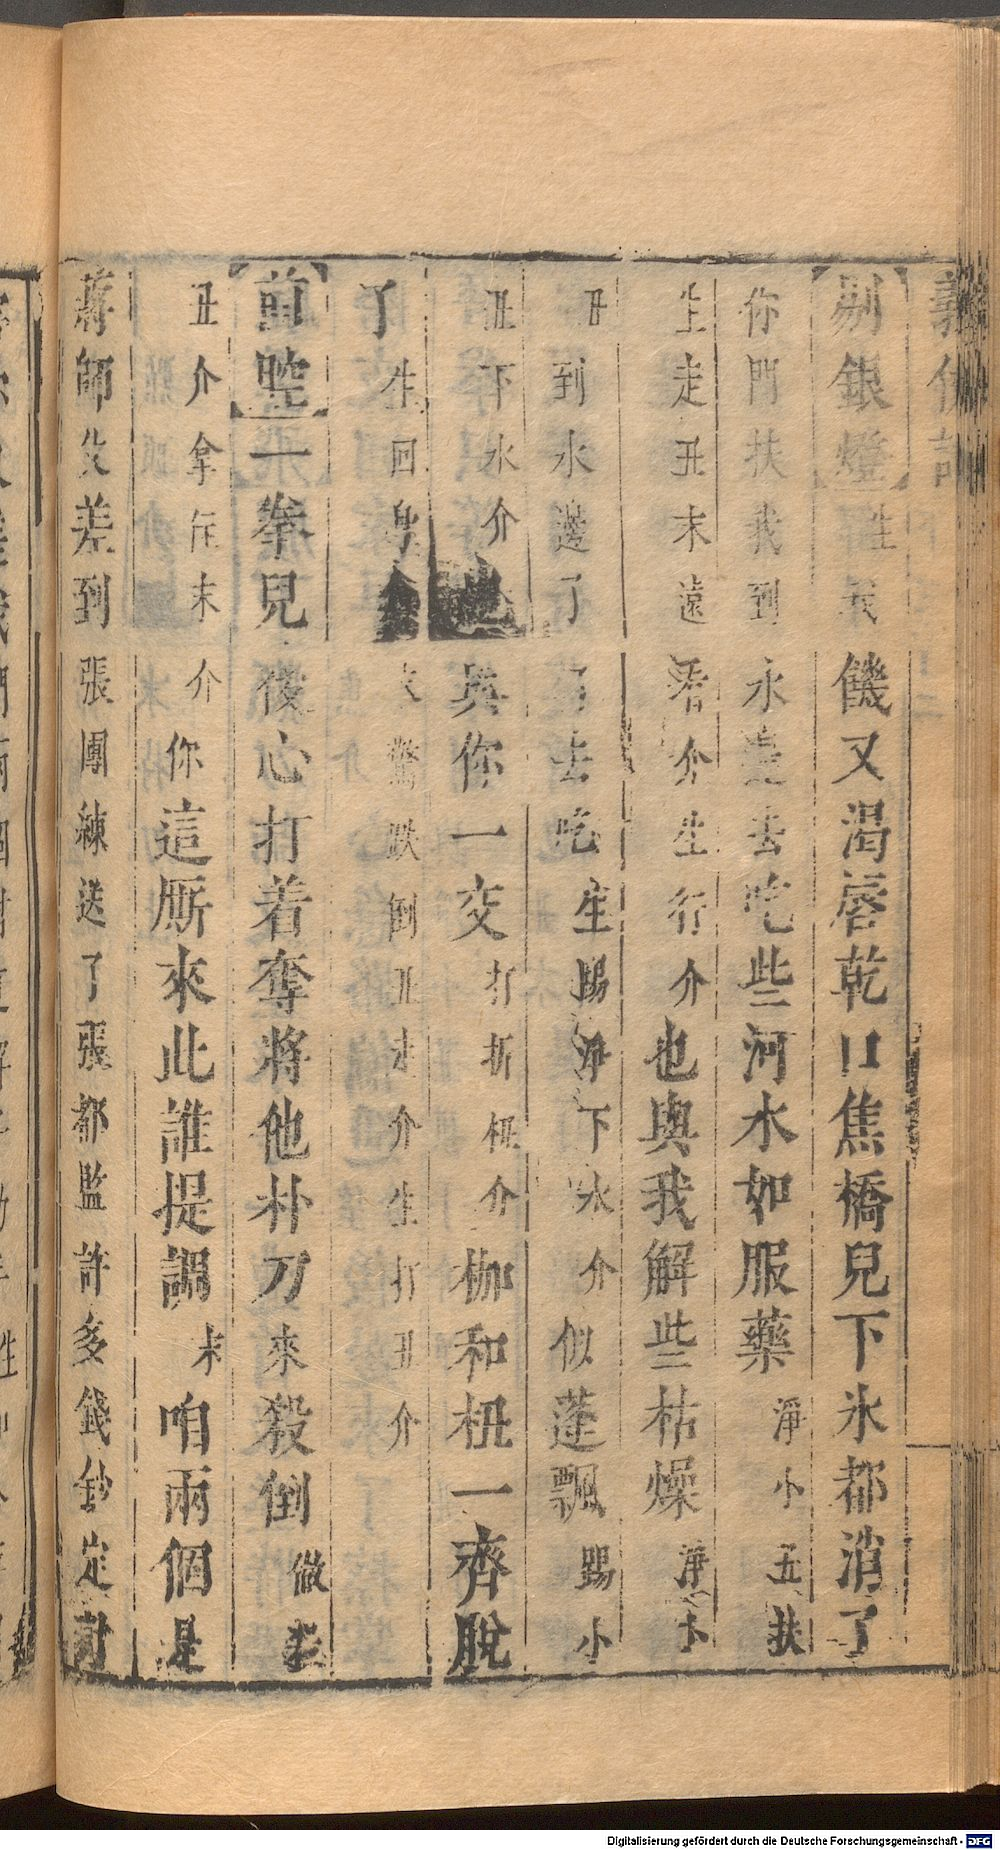 義俠記
剔銀燈 生 我饑又渴唇乾口焦橋兒下氷都消了
你門扶我到水邊去吃些河水如服藥 淨小丑扶
生走丑末遠看介生行介也與我解些枯燥 淨小
丑到水邊了 去吃生踢淨下水介似蓬飄 踢小
丑下水介 與你一交打折枷介枷和杻一齊脫
了 生回身 末驚跌倒丑走介生打丑介
前腔一拳兒後心打着奪將他朴刀來殺倒 做殺
丑介拿住末介你這厮來此誰提調 末咱兩個是
蔣師父差到張團練送了張都監許多錢鈔定討
Digitalisierung gefördert durch die Deutsche Forschungsgemeinschaft - DFG